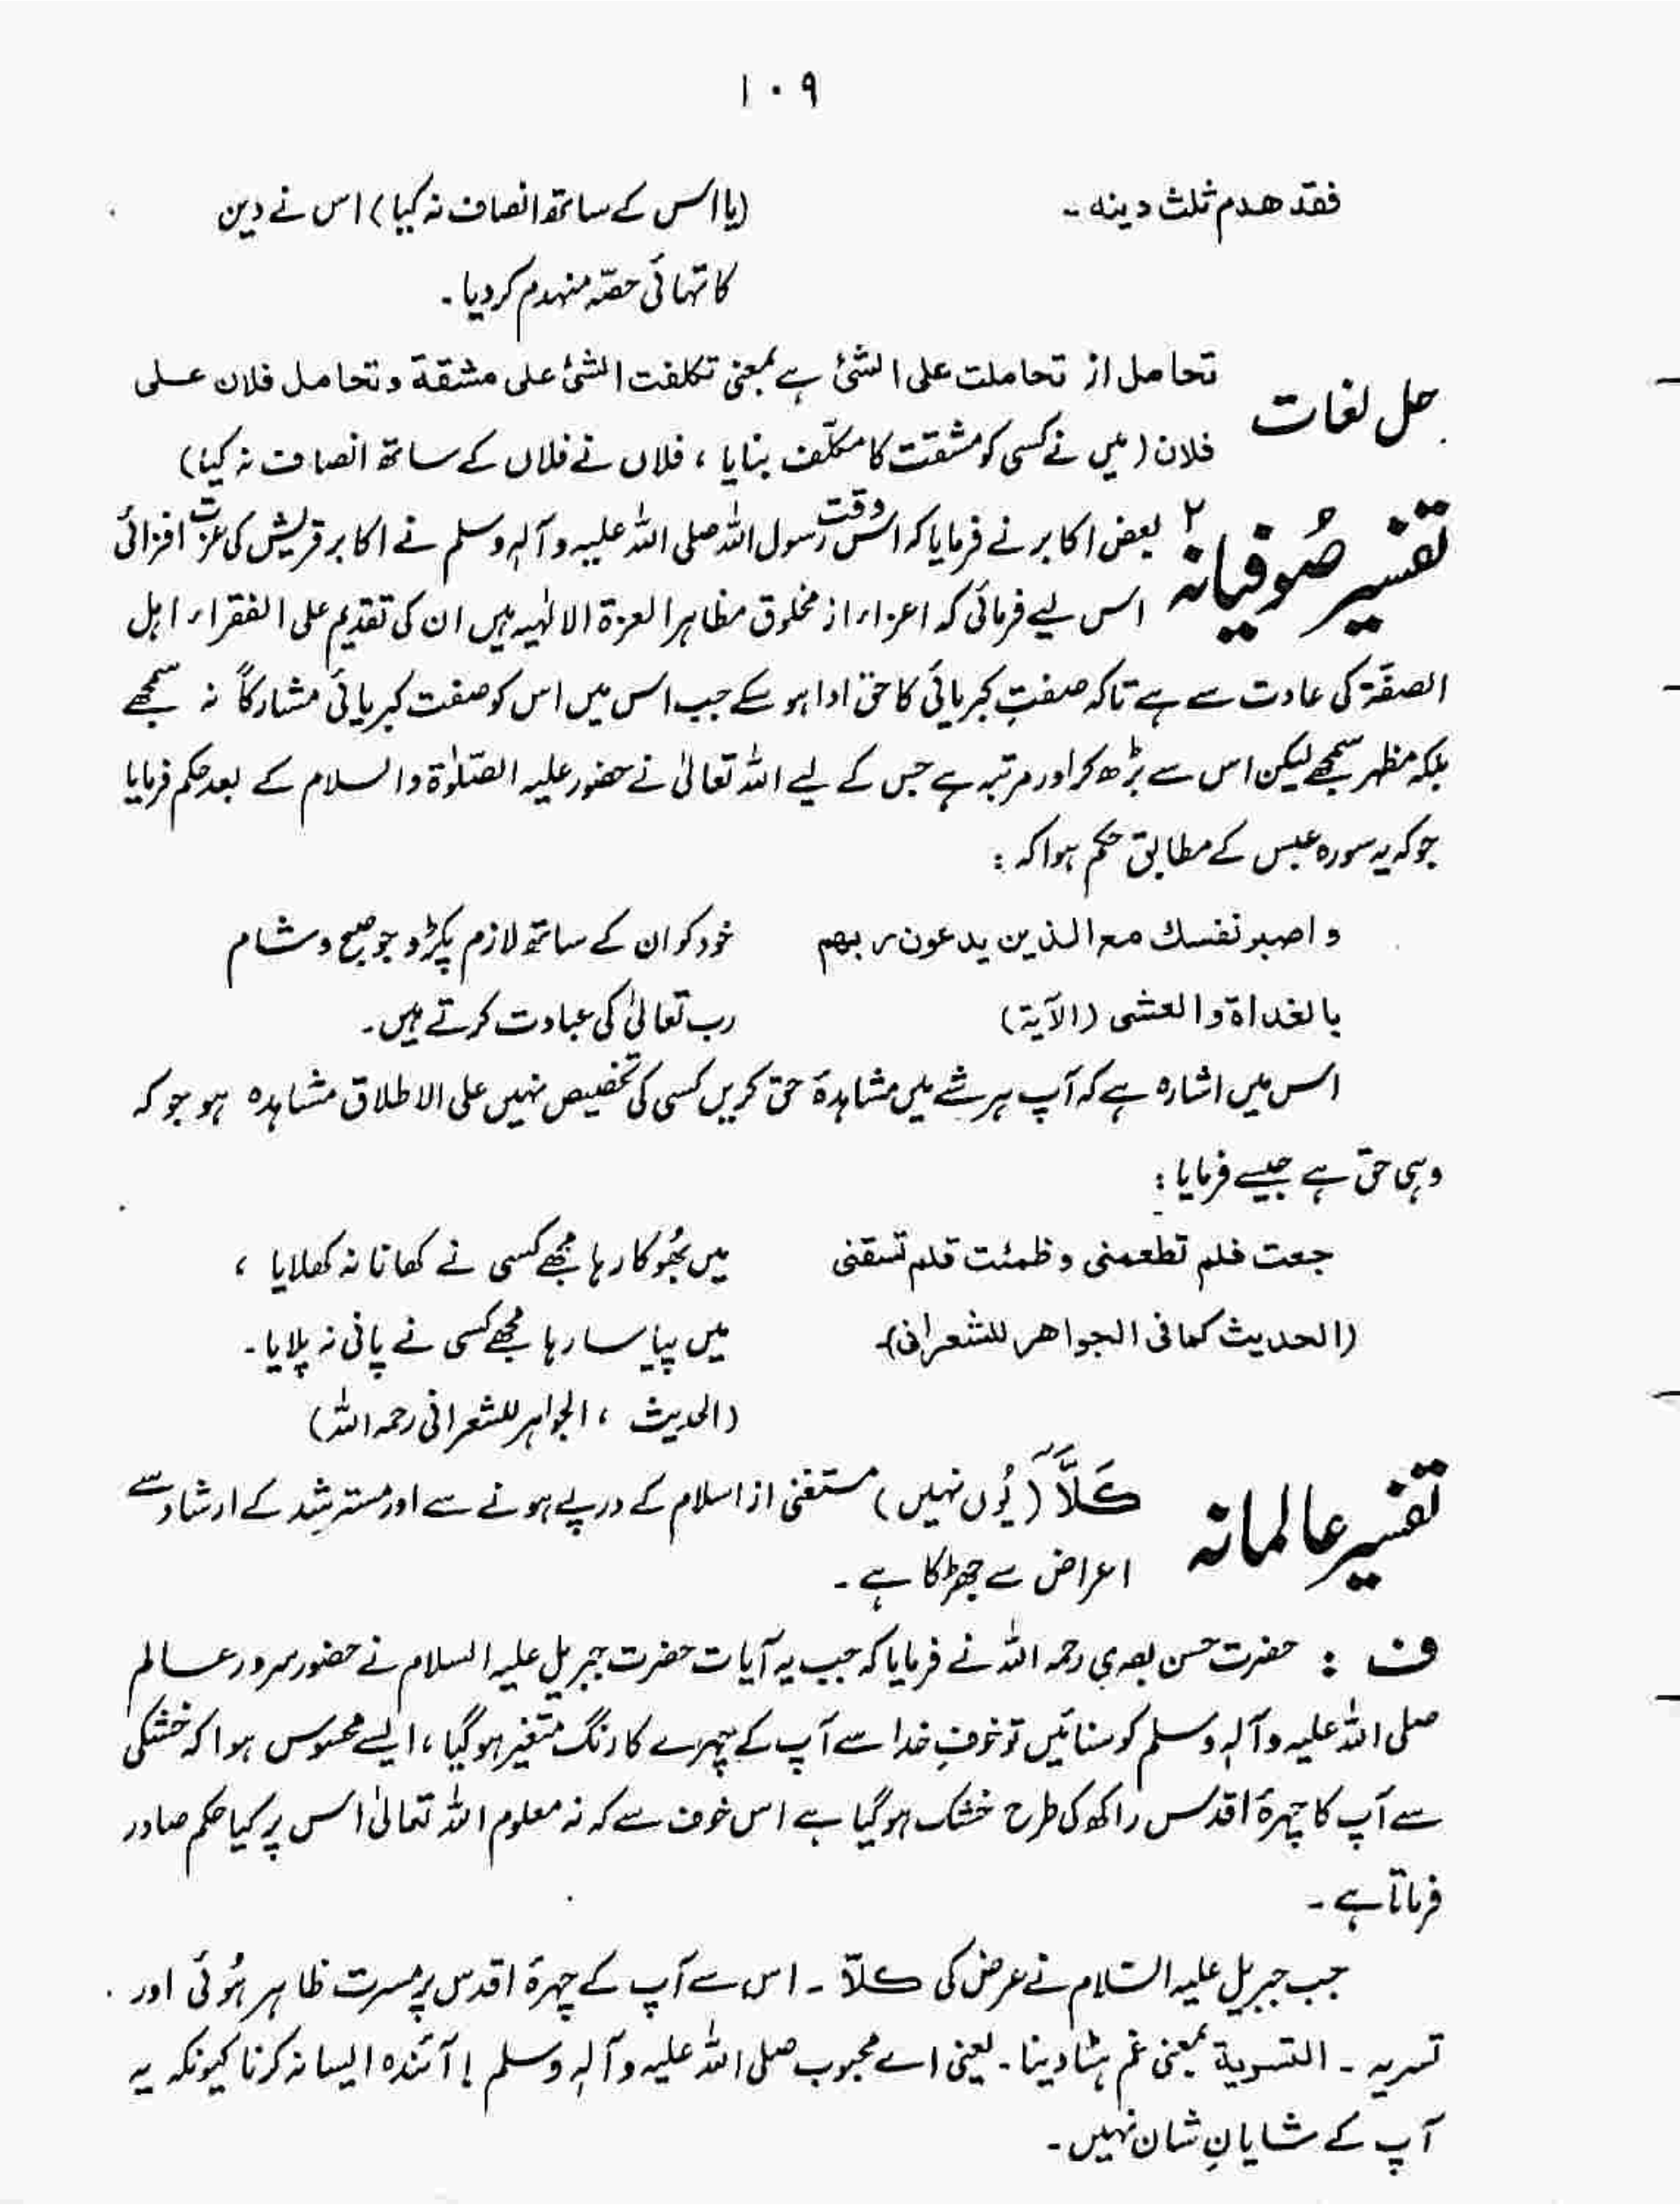 ۱۰۹
فقد هدم ثلث دينه ۔ (یا اس کے ساتھ انصاف نہ کیا) اس نے دین
کا تہائی حصّہ منہدم کر دیا ۔
حل لغات تحامل از تحاملت علی الشئ ہے بمعنی تکلفت الشئ علی مشقة و تحامل فلان علی
فلان (میں نے کسی کو مشقت کا مکلّف بنایا ، فلاں نے فلاں کے ساتھ انصاف نہ کیا)
تفسیر صُوفیانہ ۲ بعض اکابر نے فرمایا کہ اس وقت رسول اللہ صلی اللہ علیہ وآلہٖ وسلم نے اکابر قریش کی عزت افزائی
اس لیے فرمائی کہ اعزاء از مخلوق مظاہر العزة الالٰہیہ ہیں ان کی تقدیم علی الفقراء اہل
الصفّۃ کی عادت سے ہے تاکہ صفتِ کبریائی کا حق ادا ہو سکے جب اس میں اس کو صفت کبریائی مشارکاً نہ سمجھے
بلکہ مظہر سمجھے لیکن اس سے بڑھ کر اور مرتبہ ہے جس کے لیے اللہ تعالیٰ نے حضور علیہ الصّلوٰۃ والسلام کے بعد حکم فرمایا
جو کہ یہ سورہ عبس کے مطابق حکم ہوا کہ :
واصبر نفسك مع الذين يدعون ربهم خود کو ان کے ساتھ لازم پکڑو جو صبح و شام
بالغداة والعشى (الآية) رب تعالیٰ کی عبادت کرتے ہیں ۔
اس میں اشارہ ہے کہ آپ ہر شے میں مشاہدۂ حق کریں کسی کی تخصیص نہیں علی الاطلاق مشاہدہ ہو جو کہ
وہی حق ہے جیسے فرمایا :
جعت فلم تطعمنى وظمئت قلم تسقنى میں بھُوکا رہا مجھے کسی نے کھانا نہ کھلایا ،
(الحديث كما فى الجواهر للشعرانى)۔ میں پیاسا رہا مجھے کسی نے پانی نہ پلایا ۔
(الحدیث ، الجواہر للشعرانی رحمہ اللہ)
تفسیر عالمانہ كَلَّآ (یُوں نہیں) مستغنی از اسلام کے درپے ہونے سے اور مسترشد کے ارشاد سے
اعراض سے جھڑکا ہے ۔
ف : حضرت حسن بصری رحمہ اللہ نے فرمایا کہ جب یہ آیات حضرت جبریل علیہ السلام نے حضور سرور عالم
صلی اللہ علیہ وآلہٖ وسلم کو سنائیں تو خوفِ خدا سے آپ کے چہرے کا رنگ متغیر ہو گیا ، ایسے محسوس ہوا کہ خشکی
سے آپ کا چہرۂ اقدس راکھ کی طرح خشک ہو گیا ہے اس خوف سے کہ نہ معلوم اللہ تعالیٰ اس پر کیا حکم صادر
فرماتا ہے ۔
جب جبریل علیہ السّلام نے عرض کی کلاّ ۔ اس سے آپ کے چہرۂ اقدس پر مسرت ظاہر ہُوئی اور
تسریہ ۔ التسرية بمعنی غم ہٹا دینا ۔ یعنی اے محبوب صلی اللہ علیہ وآلہٖ وسلم ! آئندہ ایسا نہ کرنا کیونکہ یہ
آپ کے شایانِ شان نہیں ۔